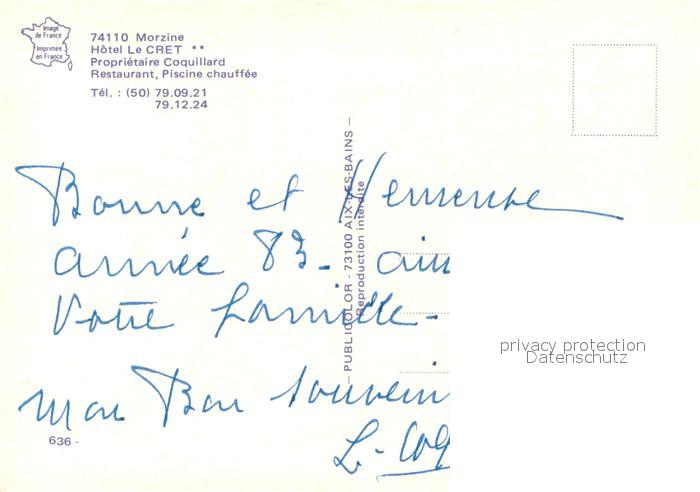 Image
de France
Imprimée
en France
74110 Morzine
Hôtel Le CRET **
Propriétaire Coquillard
Restaurant, Piscine chauffée
Tél. : (50) 79.09.21
79.12.24
— PUBLICOLOR - 73100 AIX-LES-BAINS —
Reproduction interdite
Bonne et Heureuse
année 83 -
Votre famille -
Mon Bon souvenir
L. Coq
636 -
privacy protection
Datenschutz